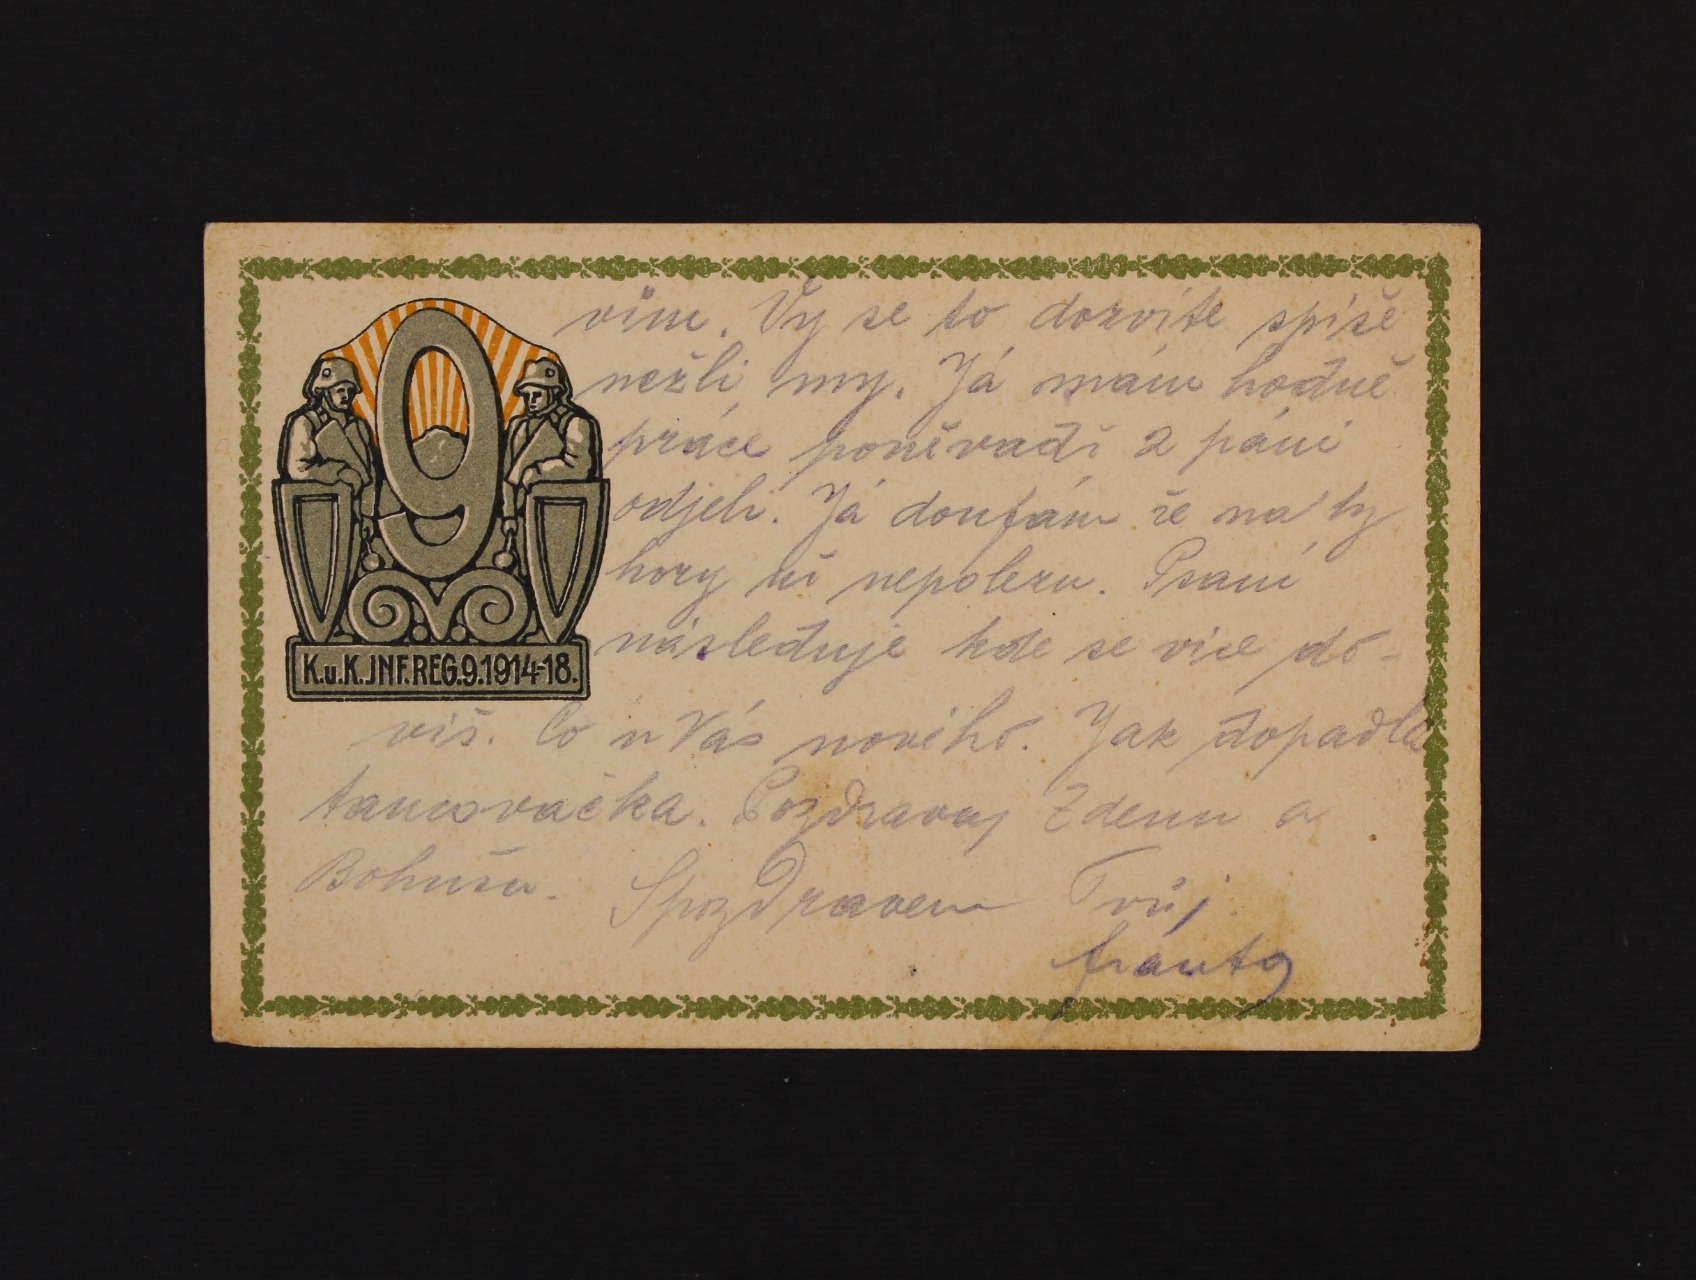 vím. Vy se to dozvíte spíše
nežli my. Já mám hodně
práce poněvadž 2 páni
odjeli. Já doufám že na ty
hory už nepolezu. Psaní
následuje kde se více do-
víš. Co u Vás nového. Jak dopadla
tancovačka. Pozdravuj Zdenu a
Bohuša. S pozdravem Tvůj
Fránta
K.u.K. JNF. REG. 9. 1914-18.
9